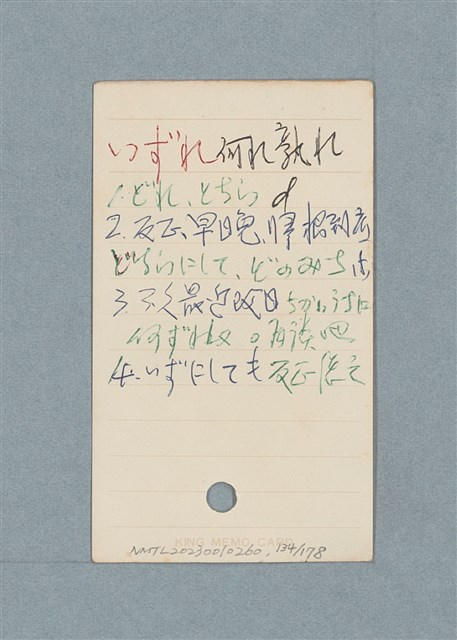 いずれ 何れ 孰れ
1. どれ、どちら d
2. 反正、早晚、歸根到底
どちらにして、どのみち
3. 不久 最近 改日 ちかいうちに
何ずれ又 。再談吧
4. いずにしても 反正
KING MEMO CARD
NMTL20230010260, 134/178